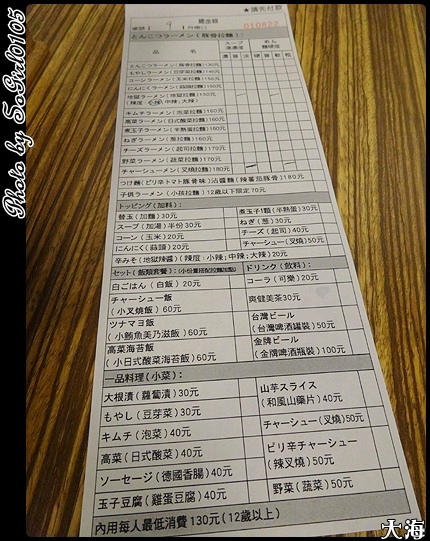 ★請先付款
桌號 9 總金額
010822
とんこつラーメン(豚骨拉麵): スープ めん
湯濃度 麵硬度
とんこつラーメン(豚骨拉麵)130元
もやしラーメン(豆芽菜拉麵)140元
コーンラーメン(玉米拉麵)150元
にんにくラーメン 150元
地獄ラーメン(地獄拉麵)150元
(辣度:小辣,中辣,大辣)
キムチラーメン(泡菜拉麵)160元
高菜ラーメン(日式酸菜拉麵)160元
煮玉子ラーメン(半熟蛋拉麵)160元
ねぎラーメン(蔥拉麵)160元
チーズラーメン(起司拉麵)170元
野菜ラーメン(蔬菜拉麵)170元
チャーシューメン(叉燒拉麵)180元
つけ麵(ピリ辛トマト豚骨味)沾醬麵(辣蕃茄豚骨)180元
子供ラーメン(小孩拉麵)12歲以下限定 70元
トッピング(加料):
替玉(加麵)30元 煮玉子1顆(半熟蛋)30元
スープ(加湯)半份30元 ねぎ(蔥)30元
コーン(玉米)20元 チーズ(起司)40元
にんにく(蒜頭)20元 チャーシュー(叉燒)50元
辛みそ(地獄辣醬)(辣度:小辣;中辣;大辣)20元
セット(飯類套餐):(小份量搭配拉麵點選) ドリンク(飲料):
白ごはん(白飯)20元 コーラ(可樂)30元
チャーシュー飯
(小叉燒飯)60元 爽健美茶30元
ツナマヨ飯
(小鮪魚美乃滋飯)60元 台湾ビール
(台灣啤酒罐裝)50元
高菜海苔飯
(小日式酸菜海苔飯)60元 金牌ビール
(金牌啤酒瓶裝)100元
一品料理(小菜):
大根漬(蘿蔔漬)30元 山芋スライス
(和風山藥片)40元
もやし(豆芽菜)30元
キムチ(泡菜)40元 チャーシュー(叉燒)50元
高菜(日式酸菜)40元 ピリ辛チャーシュー
(辣叉燒)50元
ソーセージ(德國香腸)40元
玉子豆腐(雞蛋豆腐)40元 野菜(蔬菜)50元
內用每人最低消費130元(12歲以上)
Photo by SoGirl0105
大海